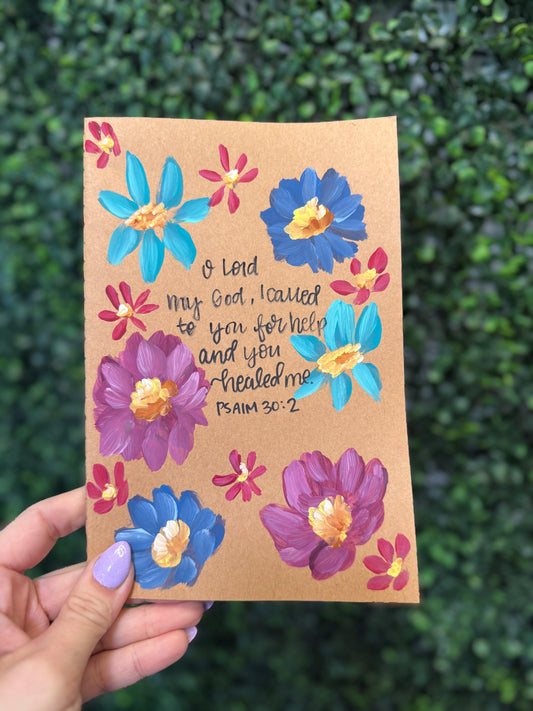 O Lord
my God, I called
to you for help
and you
healed me.
PSALM 30:2